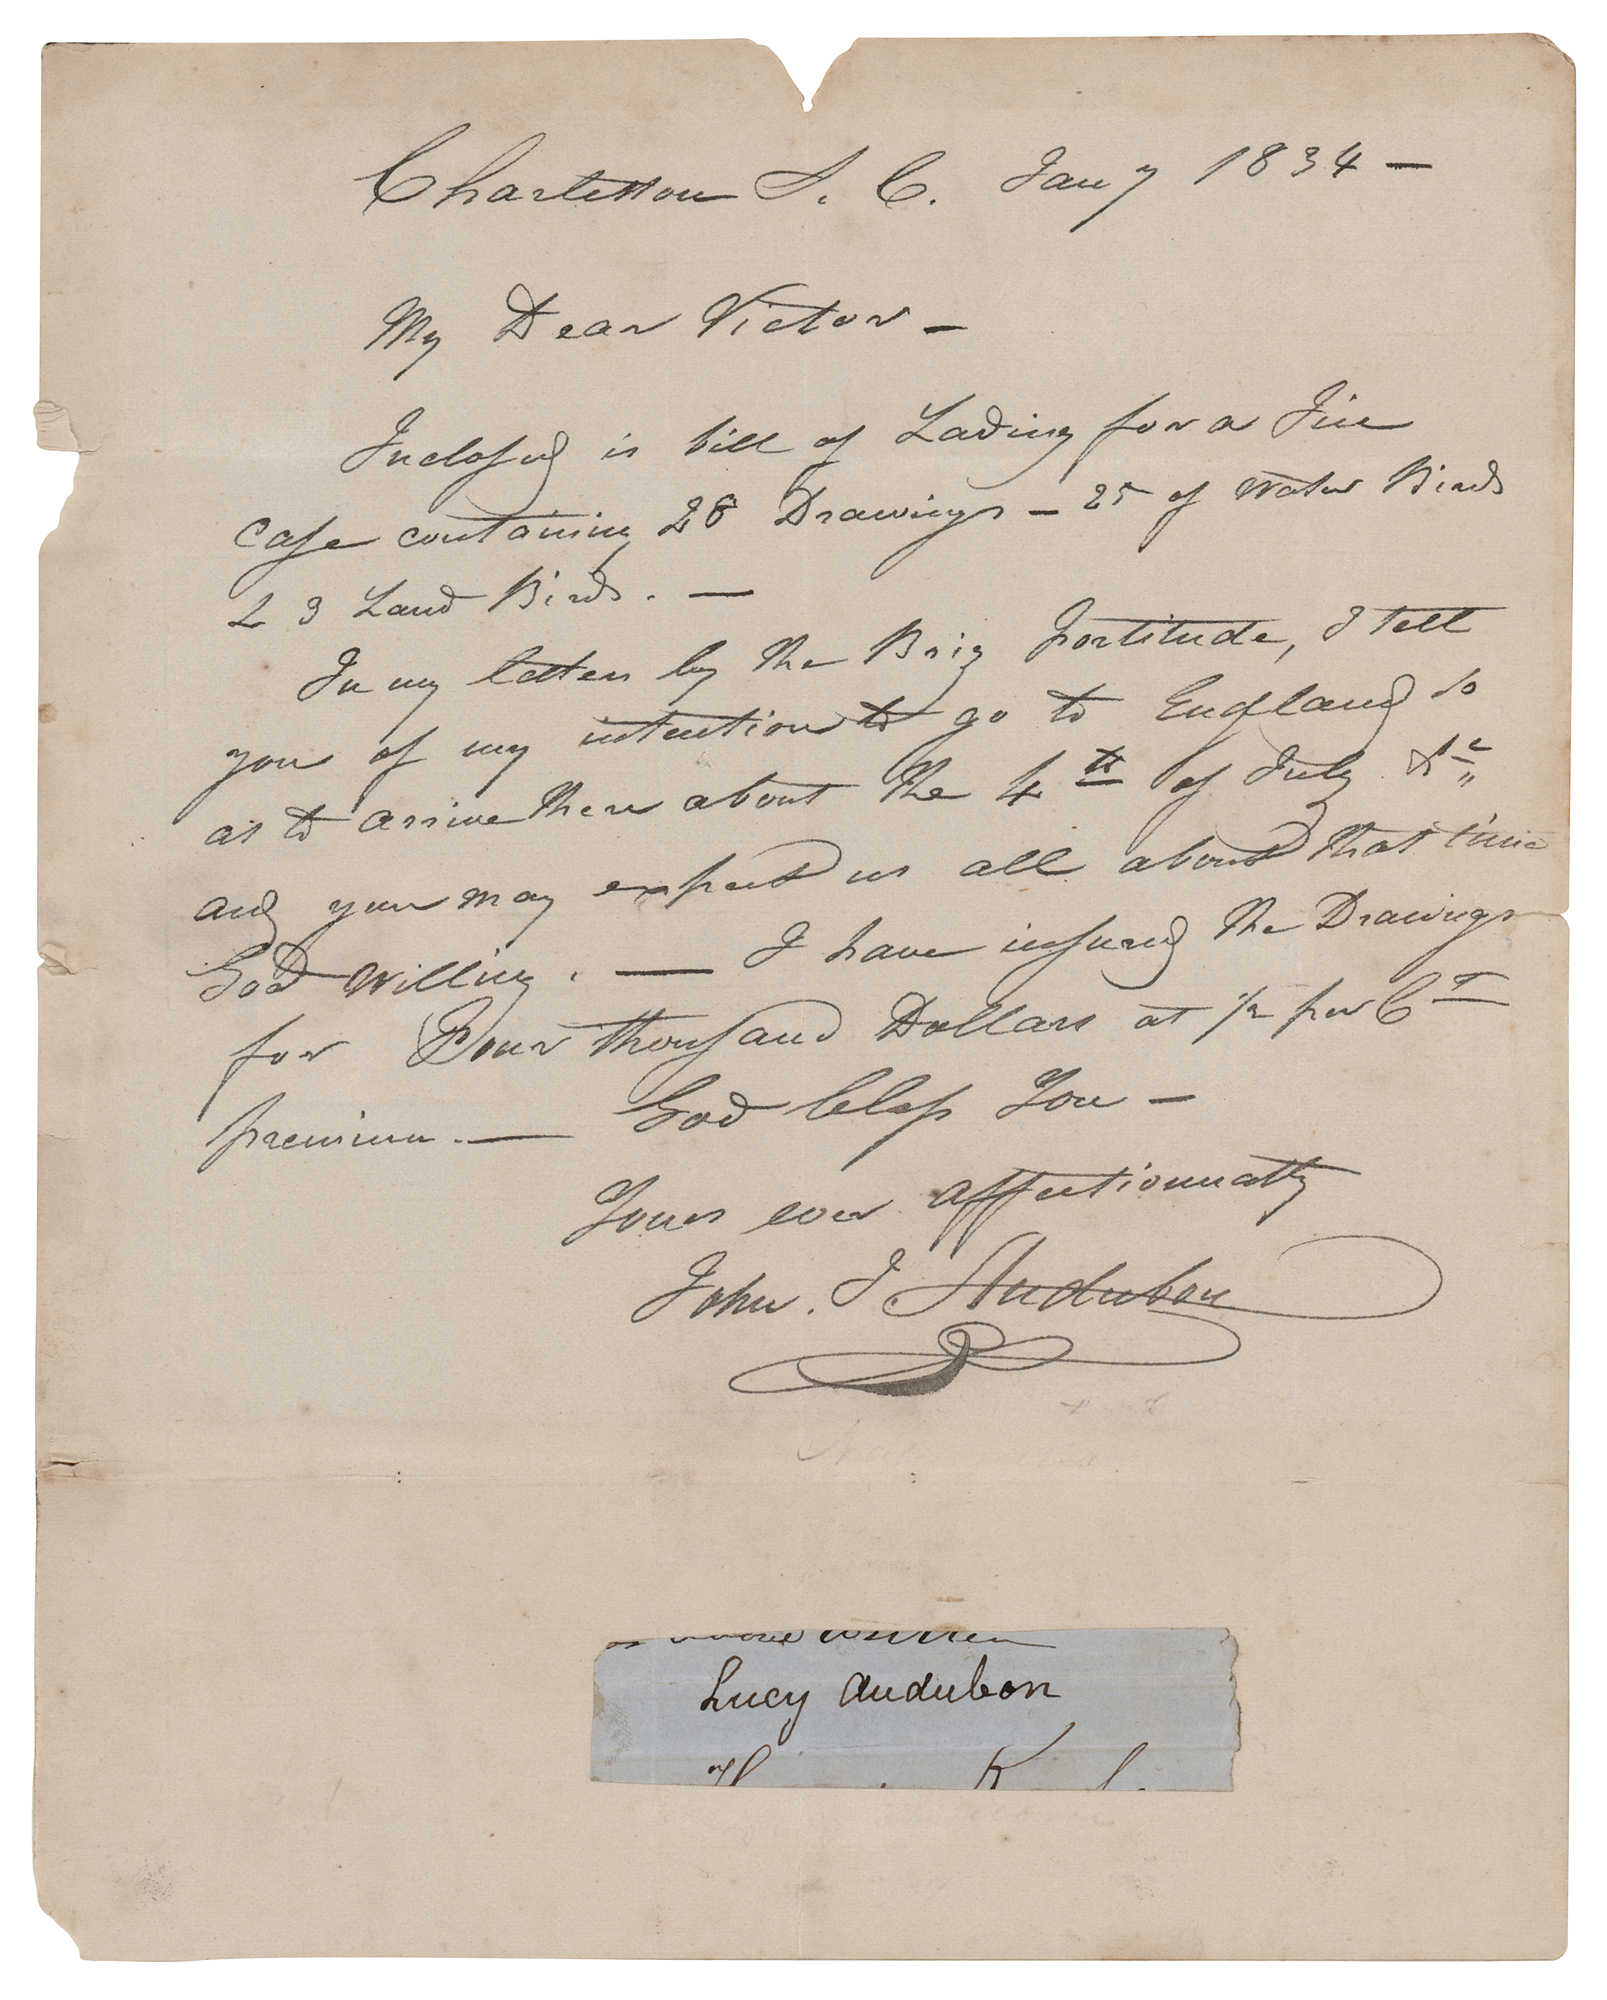 Charleston S. C. Jany 1834 —
My Dear Victor —
Inclosed is bill of Lading for a Tin
case containing 28 Drawings — 25 of Water Birds
& 3 Land Birds. —
In my letter by the Brig Fortitude, I tell
you of my intention to go to England so
as to arrive there about the 4th of July &c
and you may expect us all about that time
God Willing. — I have insured the Drawings
for Four thousand Dollars at ½ per Ct
premium. — God bless You —
Yours ever affectionnatly
John. J. Audubon
written
Lucy Audubon